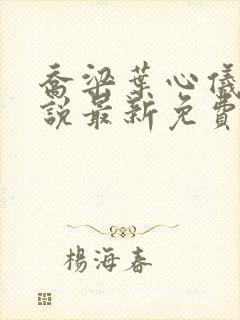 喬梁葉心儀
說最新免費
楊海春